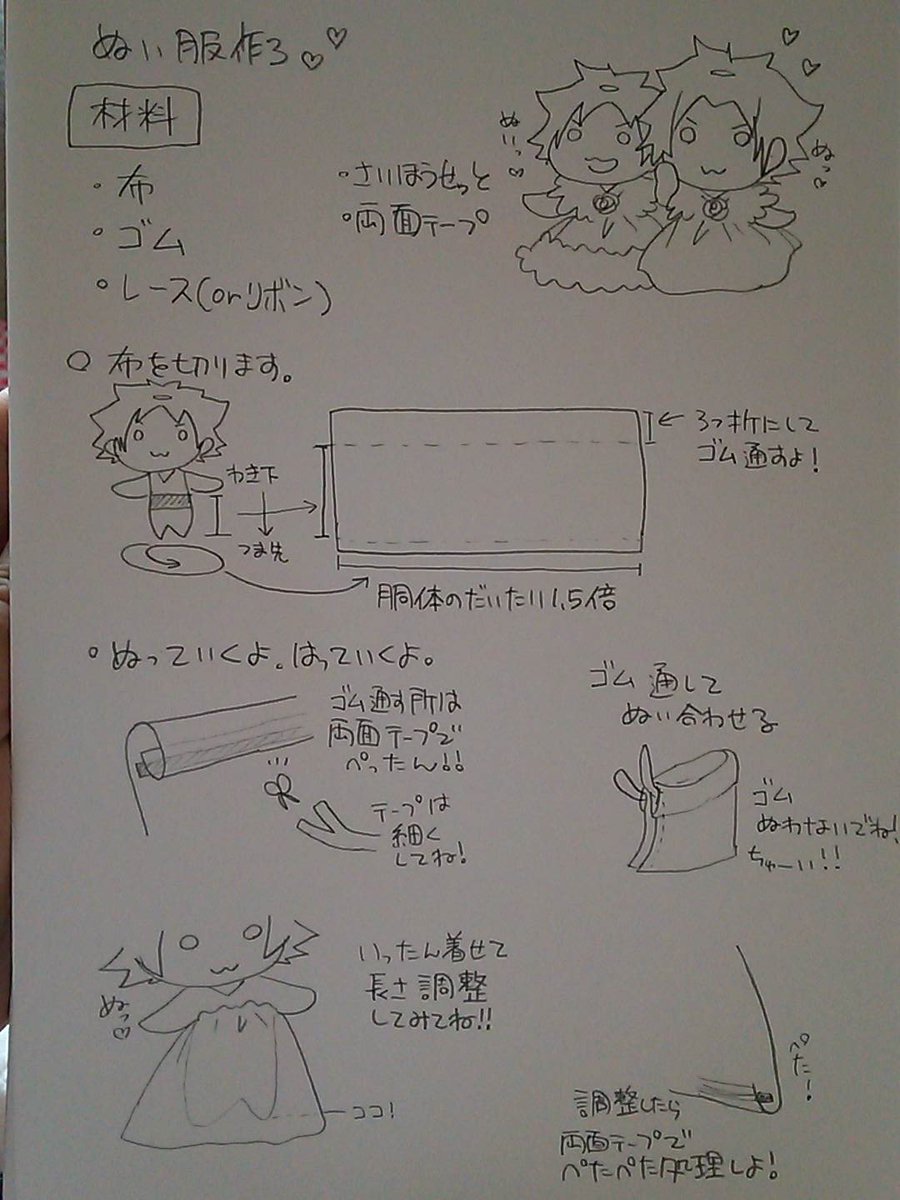 ぬい服作ろ♡♡
材料
・布
・ゴム
・レース(orリボン)
・さいほうせっと
・両面テープ
ぬいっ♡
ぬっ♡
○ 布を切ります。
わき下
つま先
3つ折にして
ゴム通すよ!
胴体のだいたい1.5倍
・ぬっていくよ。はっていくよ。
ゴム通す所は
両面テープで
ぺったん!!
テープは
細く
してね!
ゴム通して
ぬい合わせる
ゴム
ぬわないでね!
ちゅーい!!
ぬっ♡
いったん着せて
長さ調整
してみてね!!
ココ!
ぺた!
調整したら
両面テープで
ぺたぺた処理しよ!